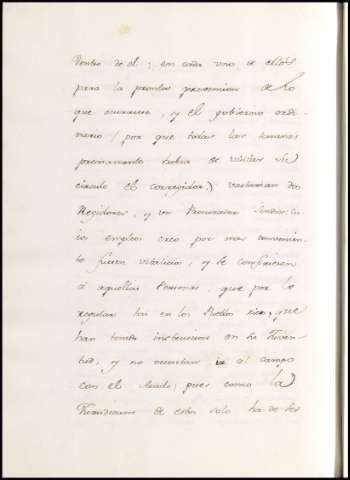 dentro de el; en cada uno de ellos
para la pronta provision de lo
que ocurriere, y el govierno ordi-
nario (por que todas las semanas
precisamente havia de visitar su
circulo el corregidor,) bastarian dos
Regidores, y un Procurador Sindico:
los empleos creo por mas convenien-
te fuesen vitalicios, y se confiriesen
á aquellas Personas, que por lo
regular hai en los Pueblos que
han tenido instruccion en la Juven-
tud, y no necesitan ir al campo
con el Arado; pues como la
de estos solo ha de ser